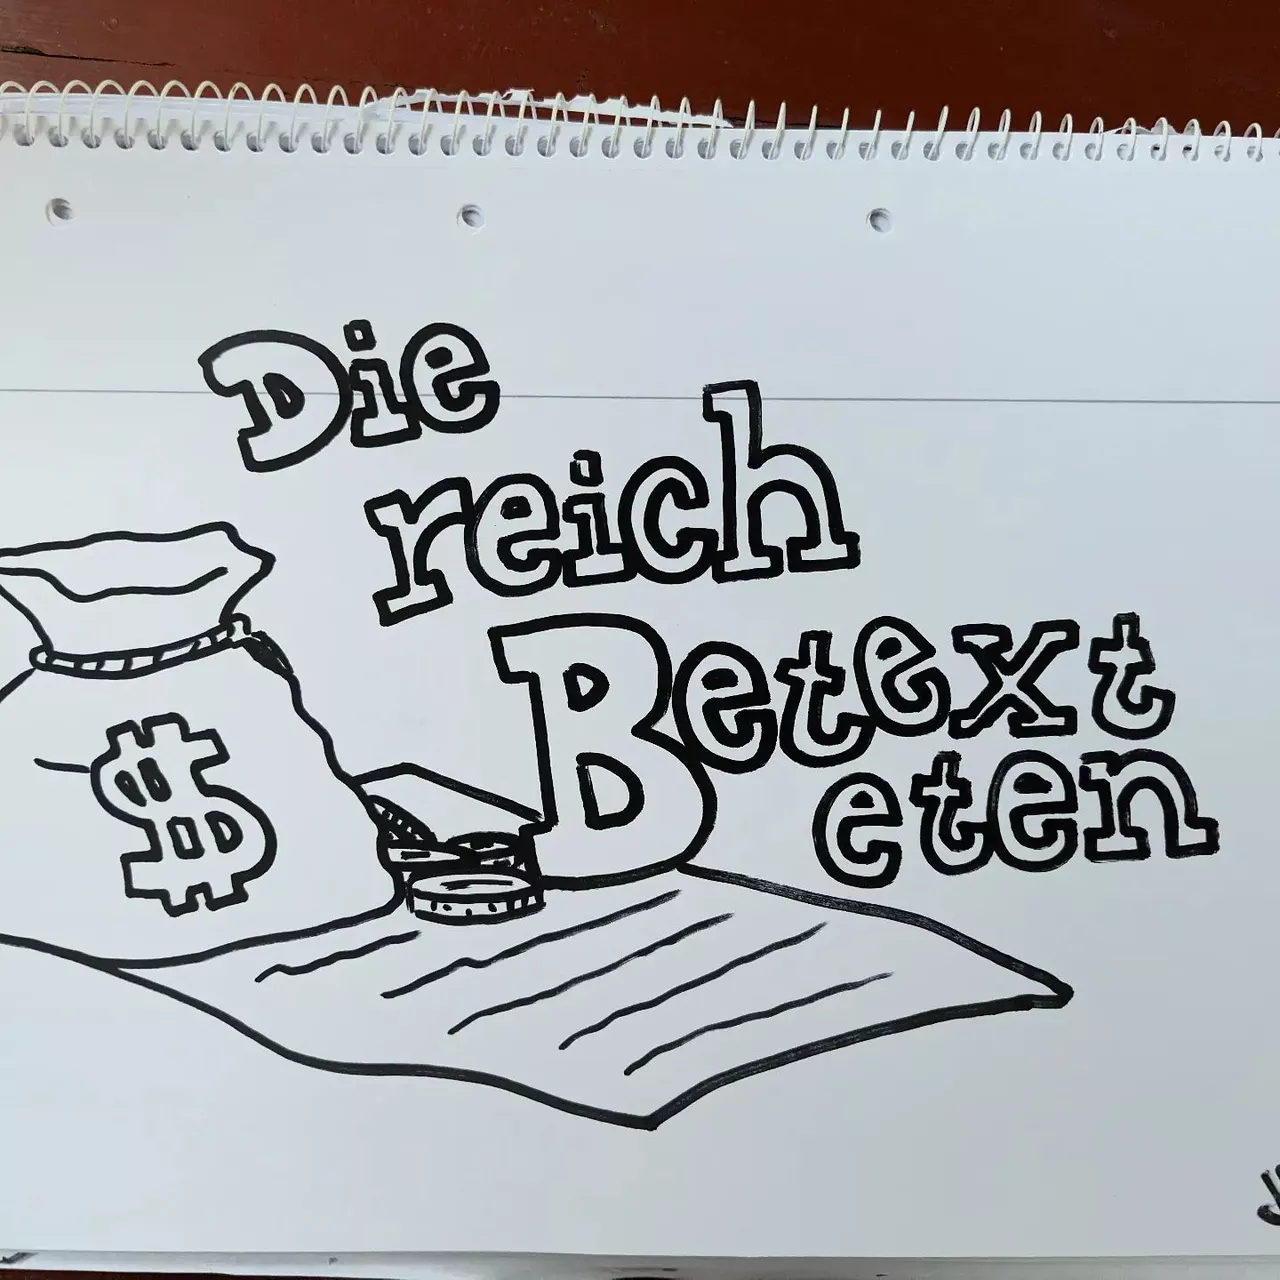 Die
reich
Betext
eten
$